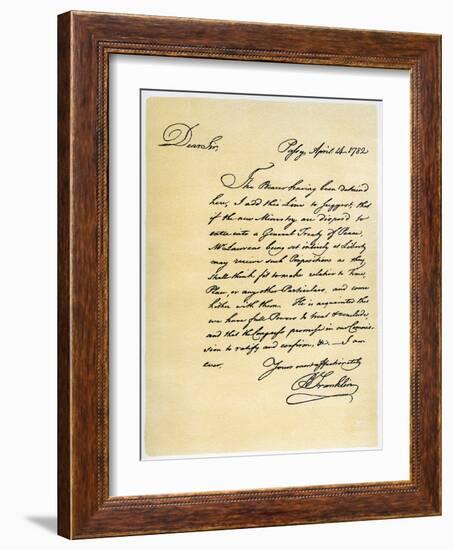 Passy, April 14. 1782
Dear Sir,
The Bearer having been detained
here, I add this Line to suggest, that
if the new Ministry are disposed to
enter into a General Treaty of Peace,
Mr Laurens being set intirely at Liberty
may receive such Propositions as they
shall think fit to make relative to Time,
Place, or any other Particulars, and come
hither with them. He is acquainted that
we have full Powers to treat & conclude,
and that the Congress promise in our Commis-
sion to ratify and confirm, &c. — I am
ever,
Yours most affectionately
B Franklin